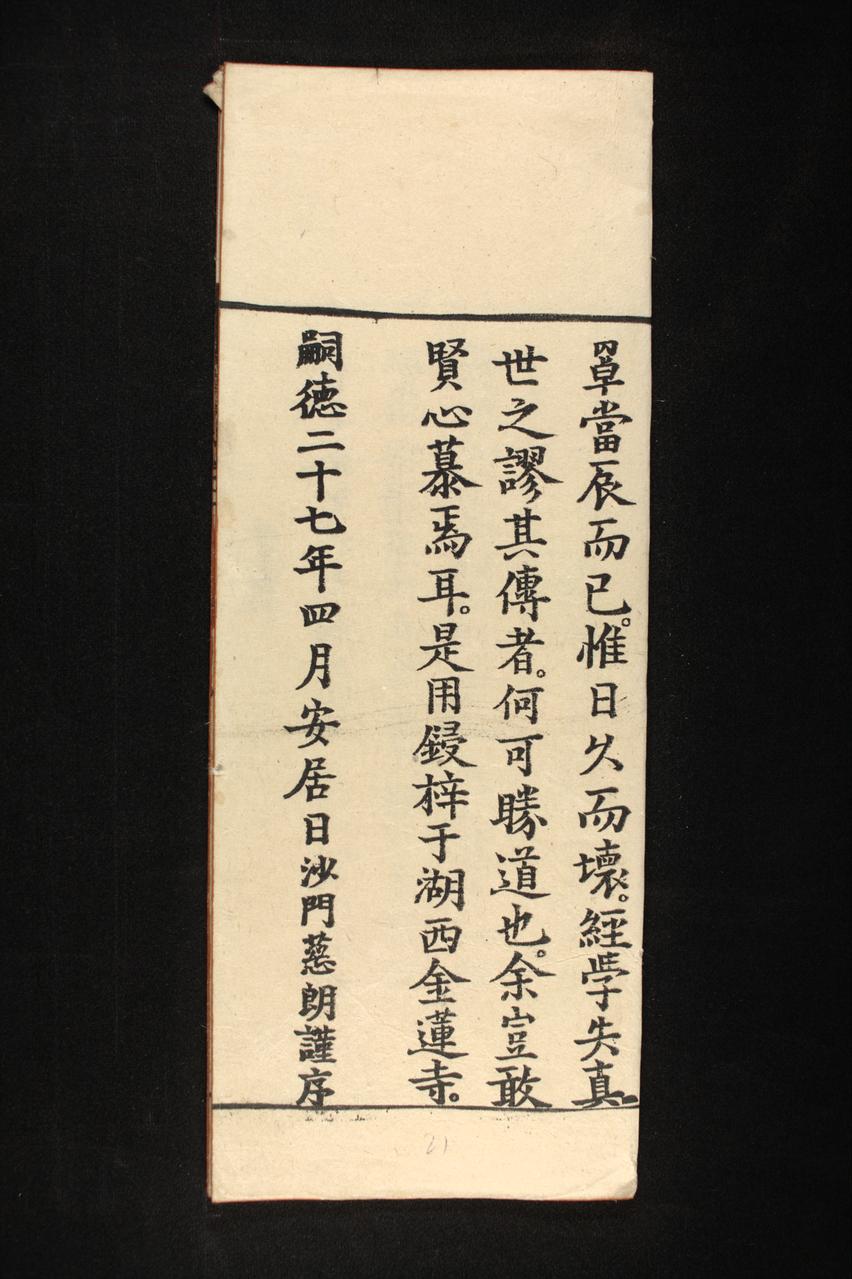 罩當辰而已。惟日久而壞。經學失真。
世之謬其傳者。何可勝道也。余豈敢
賢心慕焉耳。是用鋟梓于湖西金蓮寺。
嗣德二十七年四月安居日沙門慈朗謹序
21